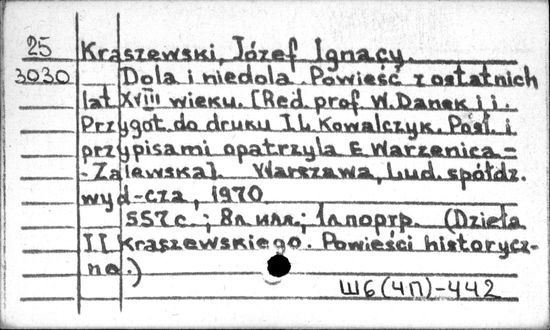 25 Kraszewski, Józef Ignacy.
3030 Dola i niedola. Powieść z ostatnich
lat XVIII wieku. [Red. prof. W. Danek i i.
Przygot. do druku I. L. Kowalczyk. Posł. i
przypisami opatrzyla E. Warzenica=
-Zalewska]. Warszawa, Lud. spółdz.
wyd-cza, 1970.
557 с.; 8л. илл.; 1л. портр. (Dzieła
I. I. Kraszewskiego. Powieści historycz-
ne.)
Ш6(4П)-442